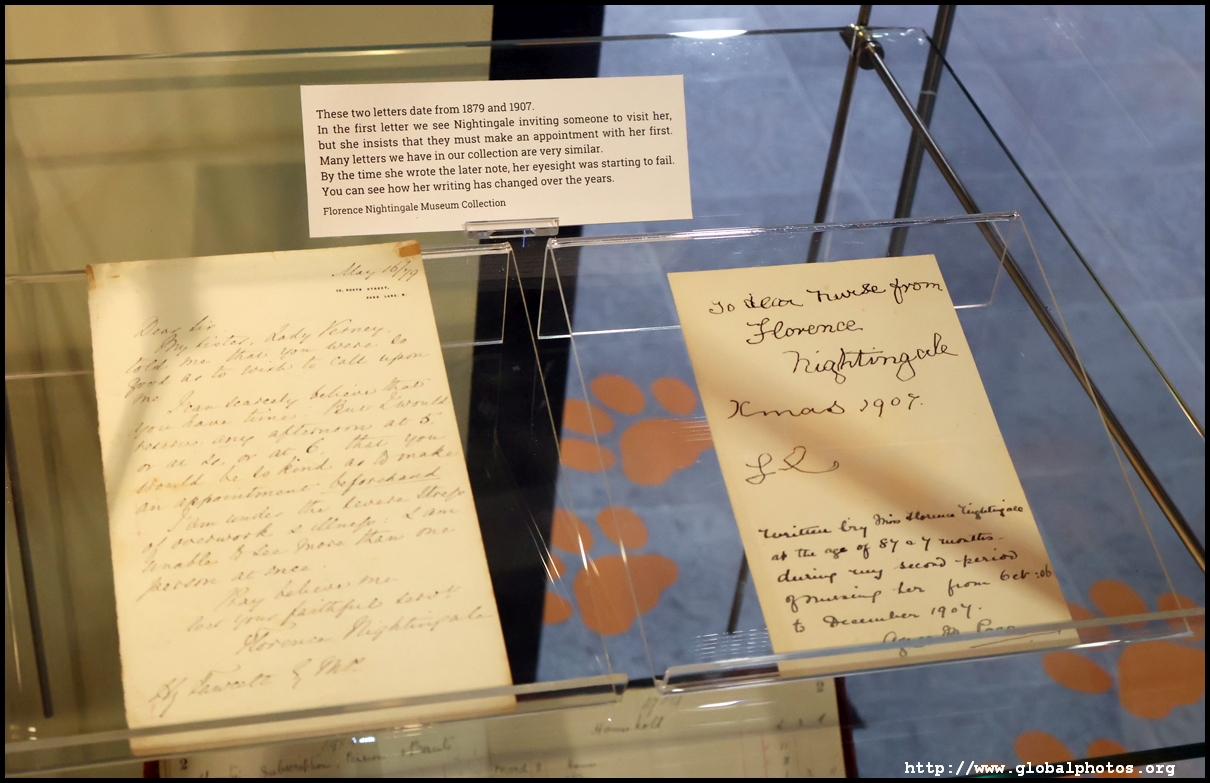 These two letters date from 1879 and 1907.
In the first letter we see Nightingale inviting someone to visit her,
but she insists that they must make an appointment with her first.
Many letters we have in our collection are very similar.
By the time she wrote the later note, her eyesight was starting to fail.
You can see how her writing has changed over the years.
Florence Nightingale Museum Collection
May 16/79
10, SOUTH STREET,
PARK LANE. W.
Dear Sir
My sister, Lady Verney,
told me that you were so
good as to wish to call upon
me
I can scarcely believe that
you have time. But I would
any afternoon at 5.
or at 6, that you
would be so kind as to make
an appointment beforehand
I am under the severe stress
of overwork & illness: I am
unable to see more than one
person at once.
Pray believe me
ever your faithful servt
Florence Nightingale
Fawcett
To dear Nurse from
Florence
Nightingale
Xmas 1907.
Written by Miss Florence Nightingale
at the age of 87 & 7 months.
during my second period
of nursing her from Oct:06
to December 1907.
2
Household
Subscription
http://www.globalphotos.org